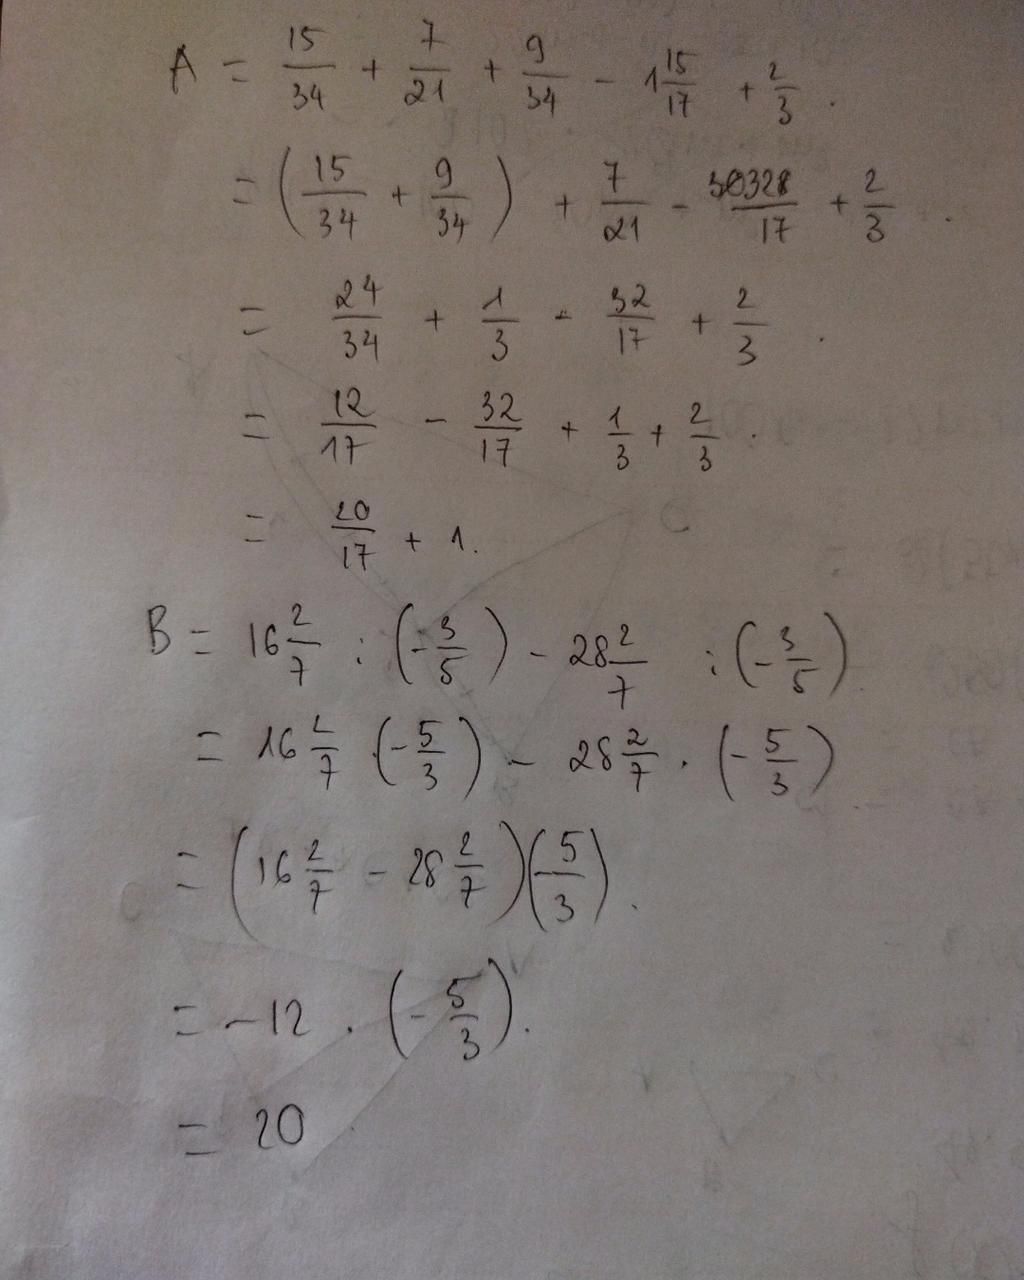 A = 15/34 + 7/21 + 9/34 - 1 15/17 + 2/3.
= (15/34 + 9/34) + 7/21 - 32/17 + 2/3.
= 24/34 + 1/3 - 32/17 + 2/3.
= 12/17 - 32/17 + 1/3 + 2/3.
= 20/17 + 1.
B = 16 2/7 : (-3/5) - 28 2/7 : (-3/5)
= 16 2/7 . (-5/3) - 28 2/7 . (-5/3)
= (16 2/7 - 28 2/7)(-5/3).
= -12 . (-5/3).
= 20